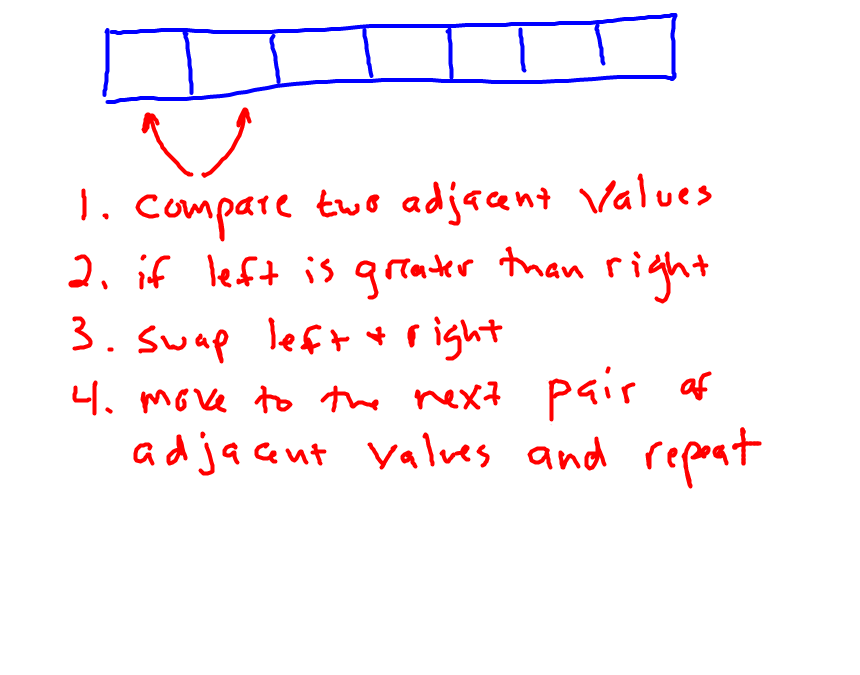 1. compare two adjacent values
2. if left is greater than right
3. swap left + right
4. move to the next pair of
adjacent values and repeat